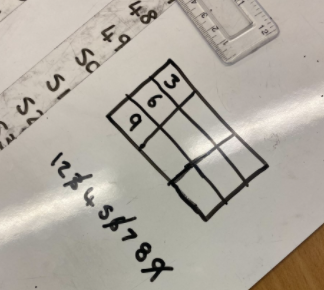 48
49
50
51
52
3
6
9
123456789